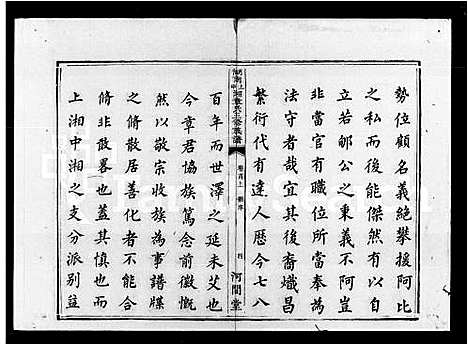 勢位顧名義絕攀援阿比
之私而後能傑然有以自
立若郇公之秉義不阿豈
非當官有職位所當奉為
法守者哉宜其後裔熾昌
繁衍代有達人歷今七八
章氏三修族譜
卷首上
四
河間堂
百年而世澤之延未艾也
今章君協族篤念前徽慨
然以敬宗收族為事譜牒
之脩散居善化者不能合
脩非敢畧也蓋其慎也而
上湘中湘之支分派別益